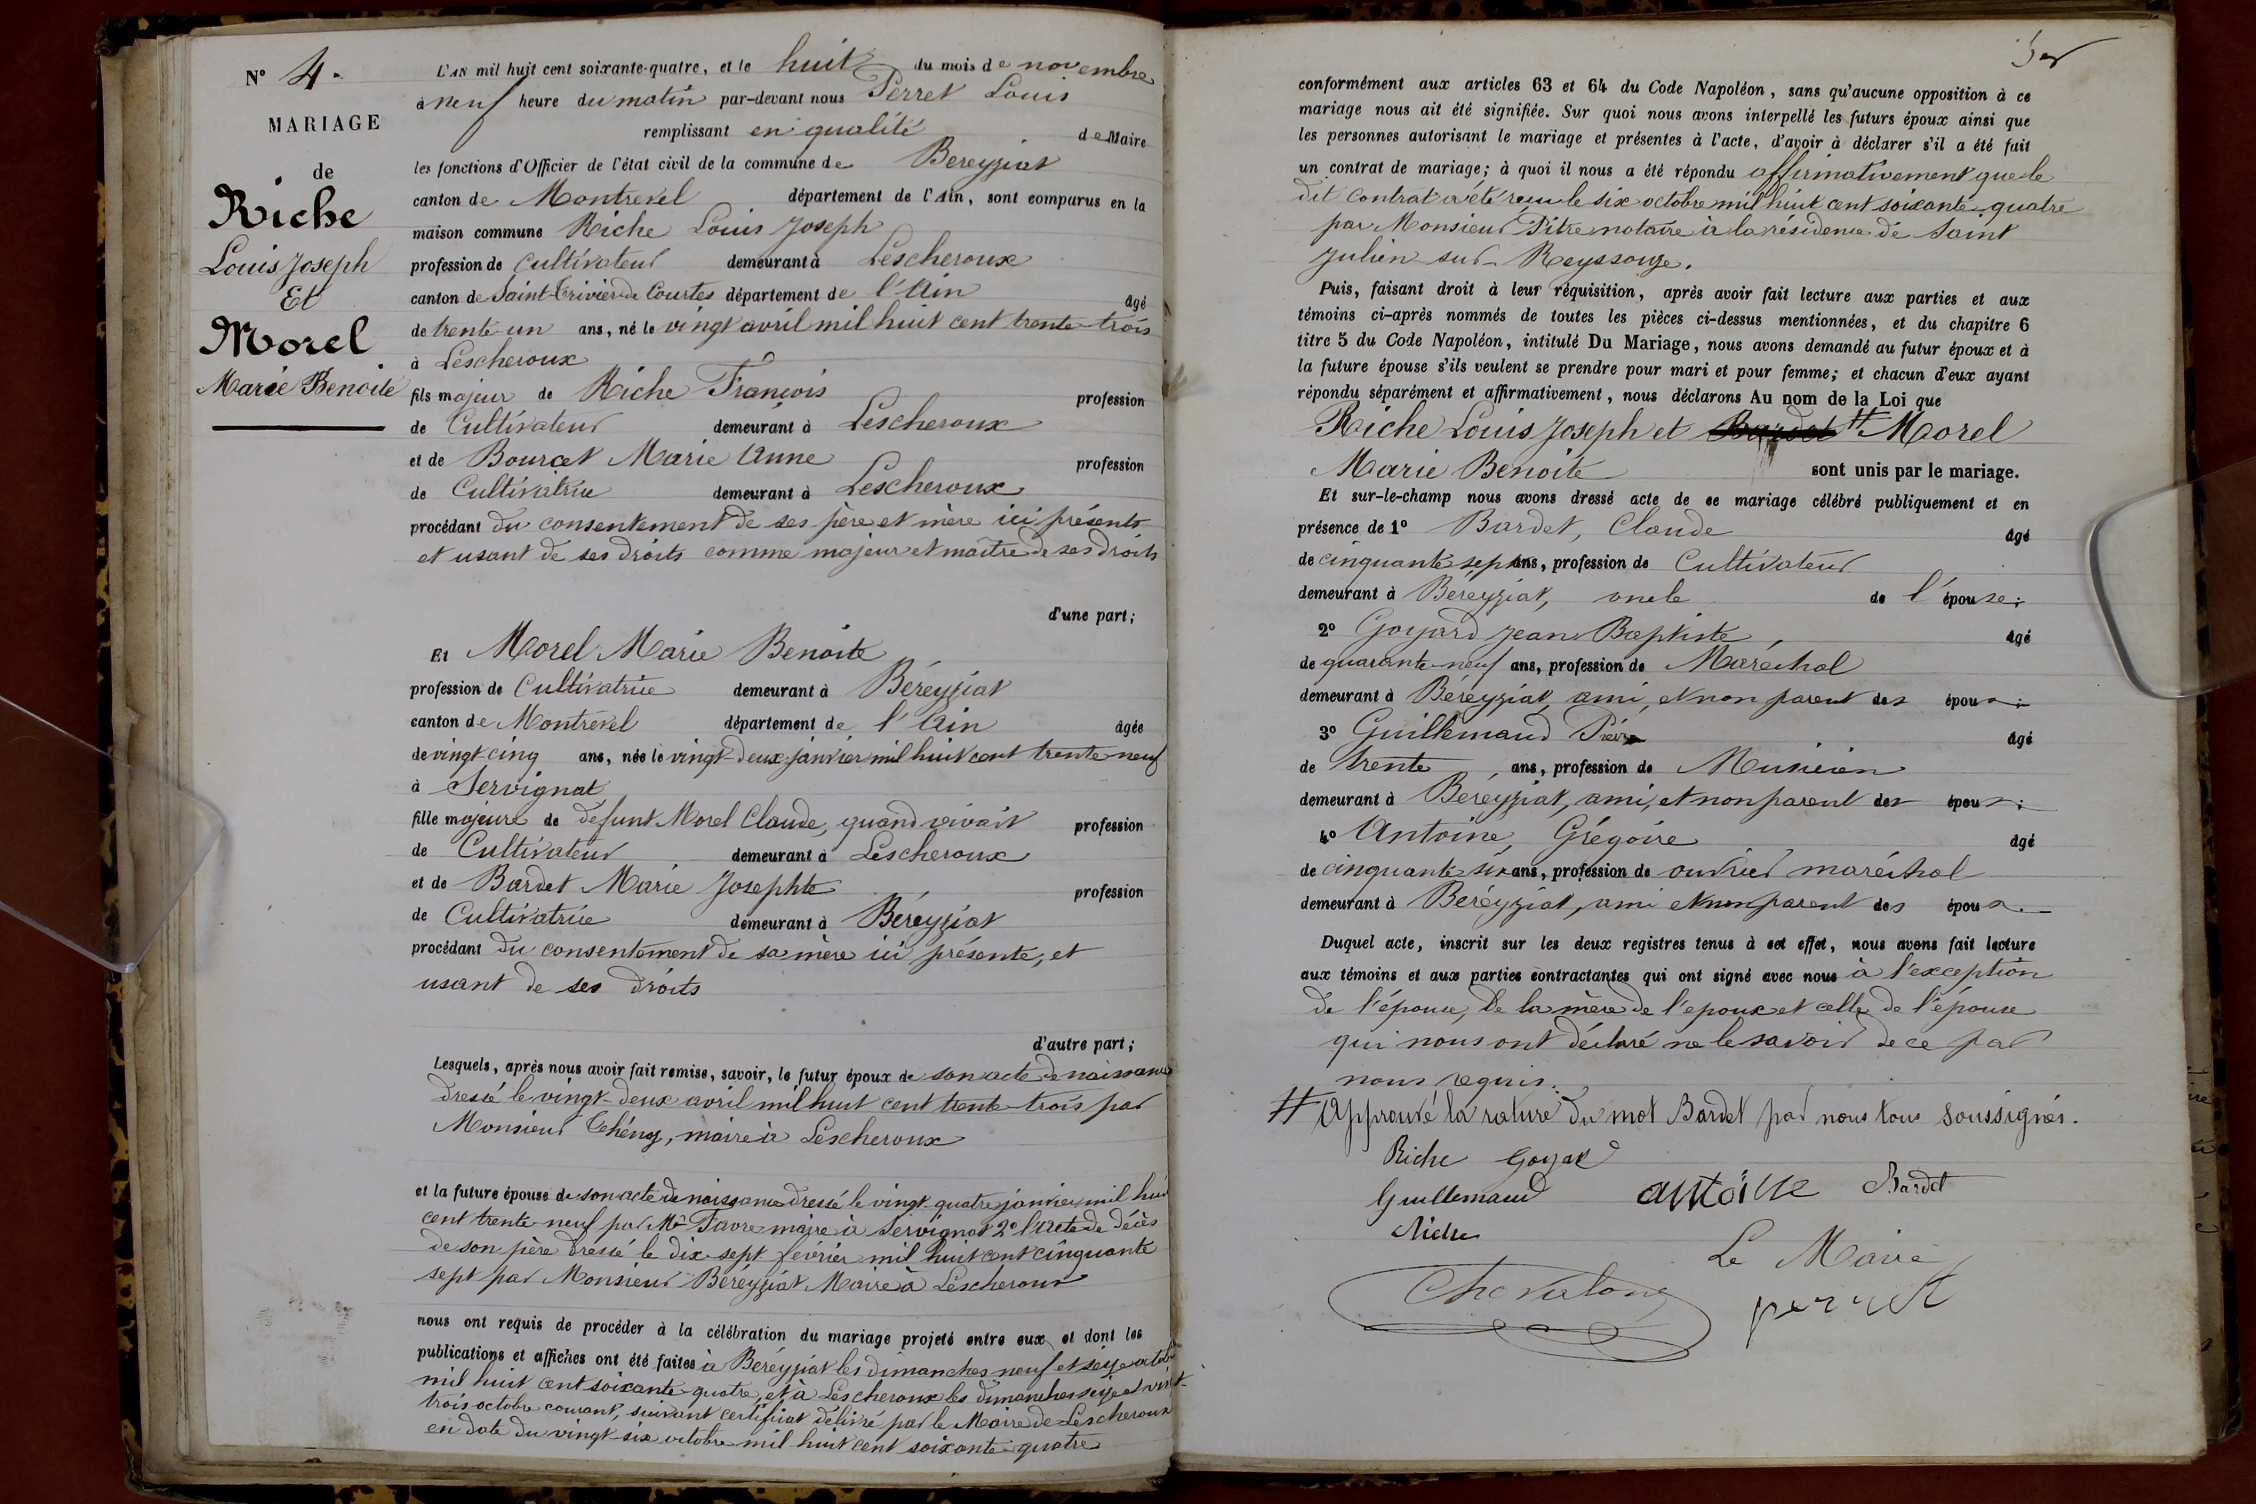 N° 4.
MARIAGE
de
Riche
Louis Joseph
Et
Morel
Marie Benoite
L'AN mil huit cent soixante-quatre, et le huit du mois de novembre
à neuf heure du matin par-devant nous Perret Louis
remplissant en qualité de Maire
les fonctions d'Officier de l'état civil de la commune de Bereyziat
canton de Montrevel département de l'Ain, sont comparus en la
maison commune Riche Louis Joseph
profession de Cultivateur demeurant à Lescheroux
canton de Saint-Trivier de Courtes département de l'Ain âgé
de trente un ans, né le vingt avril mil huit cent trente-trois
à Lescheroux
fils majeur de Riche François profession
de Cultivateur demeurant à Lescheroux
et de Bourcet Marie Anne profession
de Cultivatrice demeurant à Lescheroux
procédant du consentement de ses père et mère ici présents
et usant de ses droits comme majeur et maître de ses droits
d'une part;
Et Morel Marie Benoite
profession de Cultivatrice demeurant à Béreyziat
canton de Montrevel département de l'Ain âgée
de vingt-cinq ans, née le vingt-deux janvier mil huit cent trente neuf
à Servignat
fille majeure de défunt Morel Claude, quand vivait profession
de Cultivateur demeurant à Lescheroux
et de Bardet Marie Josephte profession
de Cultivatrice demeurant à Béreyziat
procédant du consentement de sa mère ici présente, et
usant de ses droits
d'autre part;
Lesquels, après nous avoir fait remise, savoir, le futur époux de son acte de naissance
dressé le vingt-deux avril mil huit cent trente-trois par
Monsieur Chéney, maire à Lescheroux
et la future épouse de son acte de naissance dressé le vingt-quatre janvier mil huit
cent trente-neuf par Mr Favre maire à Servignat 2° l'acte de décès
de son père dressé le dix-sept février mil huit cent cinquante
sept par Monsieur Béreyziat Maire à Lescheroux
nous ont requis de procéder à la célébration du mariage projeté entre eux et dont les
publications et affiches ont été faites à Béreyziat les dimanches neuf et seize octobre
mil huit cent soixante-quatre, et à Lescheroux les dimanches seize et vingt-
trois octobre courant, suivant certificat délivré par le Maire de Lescheroux
en date du vingt-six octobre mil huit cent soixante-quatre
conformément aux articles 63 et 64 du Code Napoléon, sans qu'aucune opposition à ce
mariage nous ait été signifiée. Sur quoi nous avons interpellé les futurs époux ainsi que
les personnes autorisant le mariage et présentes à l'acte, d'avoir à déclarer s'il a été fait
un contrat de mariage; à quoi il nous a été répondu affirmativement que le
dit contrat a été reçu le six octobre mil huit cent soixante-quatre
par Monsieur Pitre notaire à la résidence de Saint
Julien sur Reyssouze.
Puis, faisant droit à leur réquisition, après avoir fait lecture aux parties et aux
témoins ci-après nommés de toutes les pièces ci-dessus mentionnées, et du chapitre 6
titre 5 du Code Napoléon, intitulé Du Mariage, nous avons demandé au futur époux et à
la future épouse s'ils veulent se prendre pour mari et pour femme; et chacun d'eux ayant
répondu séparément et affirmativement, nous déclarons Au nom de la Loi que
Riche Louis Joseph et Bardet # Morel
Marie Benoite sont unis par le mariage.
Et sur-le-champ nous avons dressé acte de ce mariage célébré publiquement et en
présence de 1° Bardet, Claude âgé
de cinquante sept ans, profession de Cultivateur
demeurant à Béreyziat, oncle de l'épouse;
2° Goyard Jean Baptiste, âgé
de quarante-neuf ans, profession de Maréchal
demeurant à Béreyziat, ami, et non parent des époux;
3° Guillemaud Pierre âgé
de trente ans, profession de Musicien
demeurant à Béreyziat, ami, et non parent des époux;
4° Antoine, Grégoire âgé
de cinquante-six ans, profession de ouvrier maréchal
demeurant à Béréyziat, ami et non parent des époux.
Duquel acte, inscrit sur les deux registres tenus à cet effet, nous avons fait lecture
aux témoins et aux parties contractantes qui ont signé avec nous à l'exception
de l'épouse, de la mère de l'epoux et celle de l'épouse
qui nous ont déclaré ne le savoir de ce par
nous requis.
# Approuvé la rature du mot Bardet par nous tous soussignés.
Riche Goyard
Guillemaud antoine Bardet
Riche
Le Maire
perret